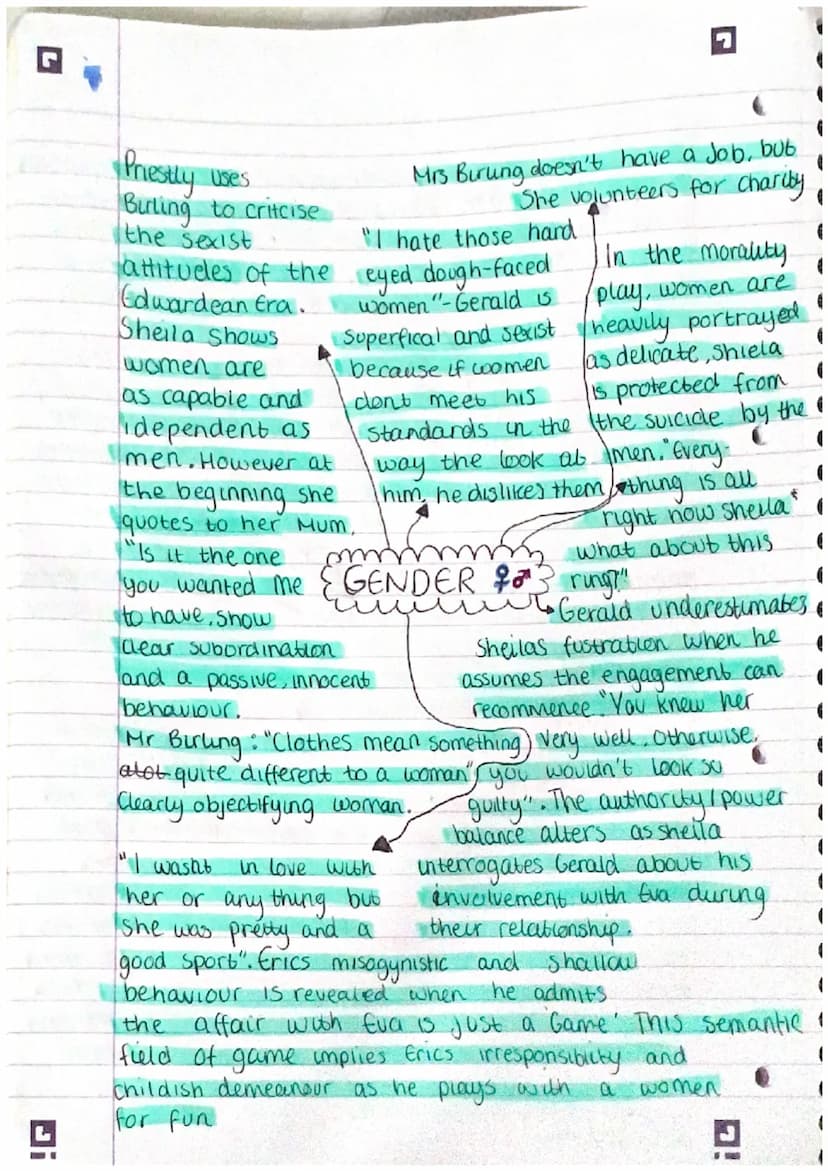 Priestly uses
Burling to critcise
the sexist
attitudes of the
Edwardean Era.
Sheila shows
women are
as capable and
idependent as
men. However at
the beginning she
quotes to her Mum,
"Is it the one
you wanted me
to have, show
clear subordination
and a passive, innocent
behaviour.
Mr Burling: "Clothes mean something
alot quite different to a woman"
Clearly objectifying woman.
"I hate those hard
eyed dough-faced
women"- Gerald is
superfical and sexist
because if women
dont meet his
standards in the
way the look at
him, he dislikes them
Mrs Burling doesn't have a Job, but
She volunteers for charity
In the morality
play, women are
heavily portrayed
as delicate, Shiela
is protected from
the suicide by the
men. "Every-
thing is all
right now sheila"
what about this
ring?"
GENDER ♀♂
Gerald underestimates
Sheilas fustration when he
assumes the engagement can
recommence. "You knew her
very well. Otherwise,
you wouldn't look so
guilty". The authority/power
balance alters as sheila
interrogates Gerald about his
involvement with Eva during
their relationship.
"I washt in love with
her or any thing but
She was pretty and a
good sport". Erics misogynistic and shallow
behaviour is revealed when he admits
the affair with Eva is just a 'Game' This semantic
field of game implies Erics irresponsibility and
childish demeanour as he plays with a women
for fun